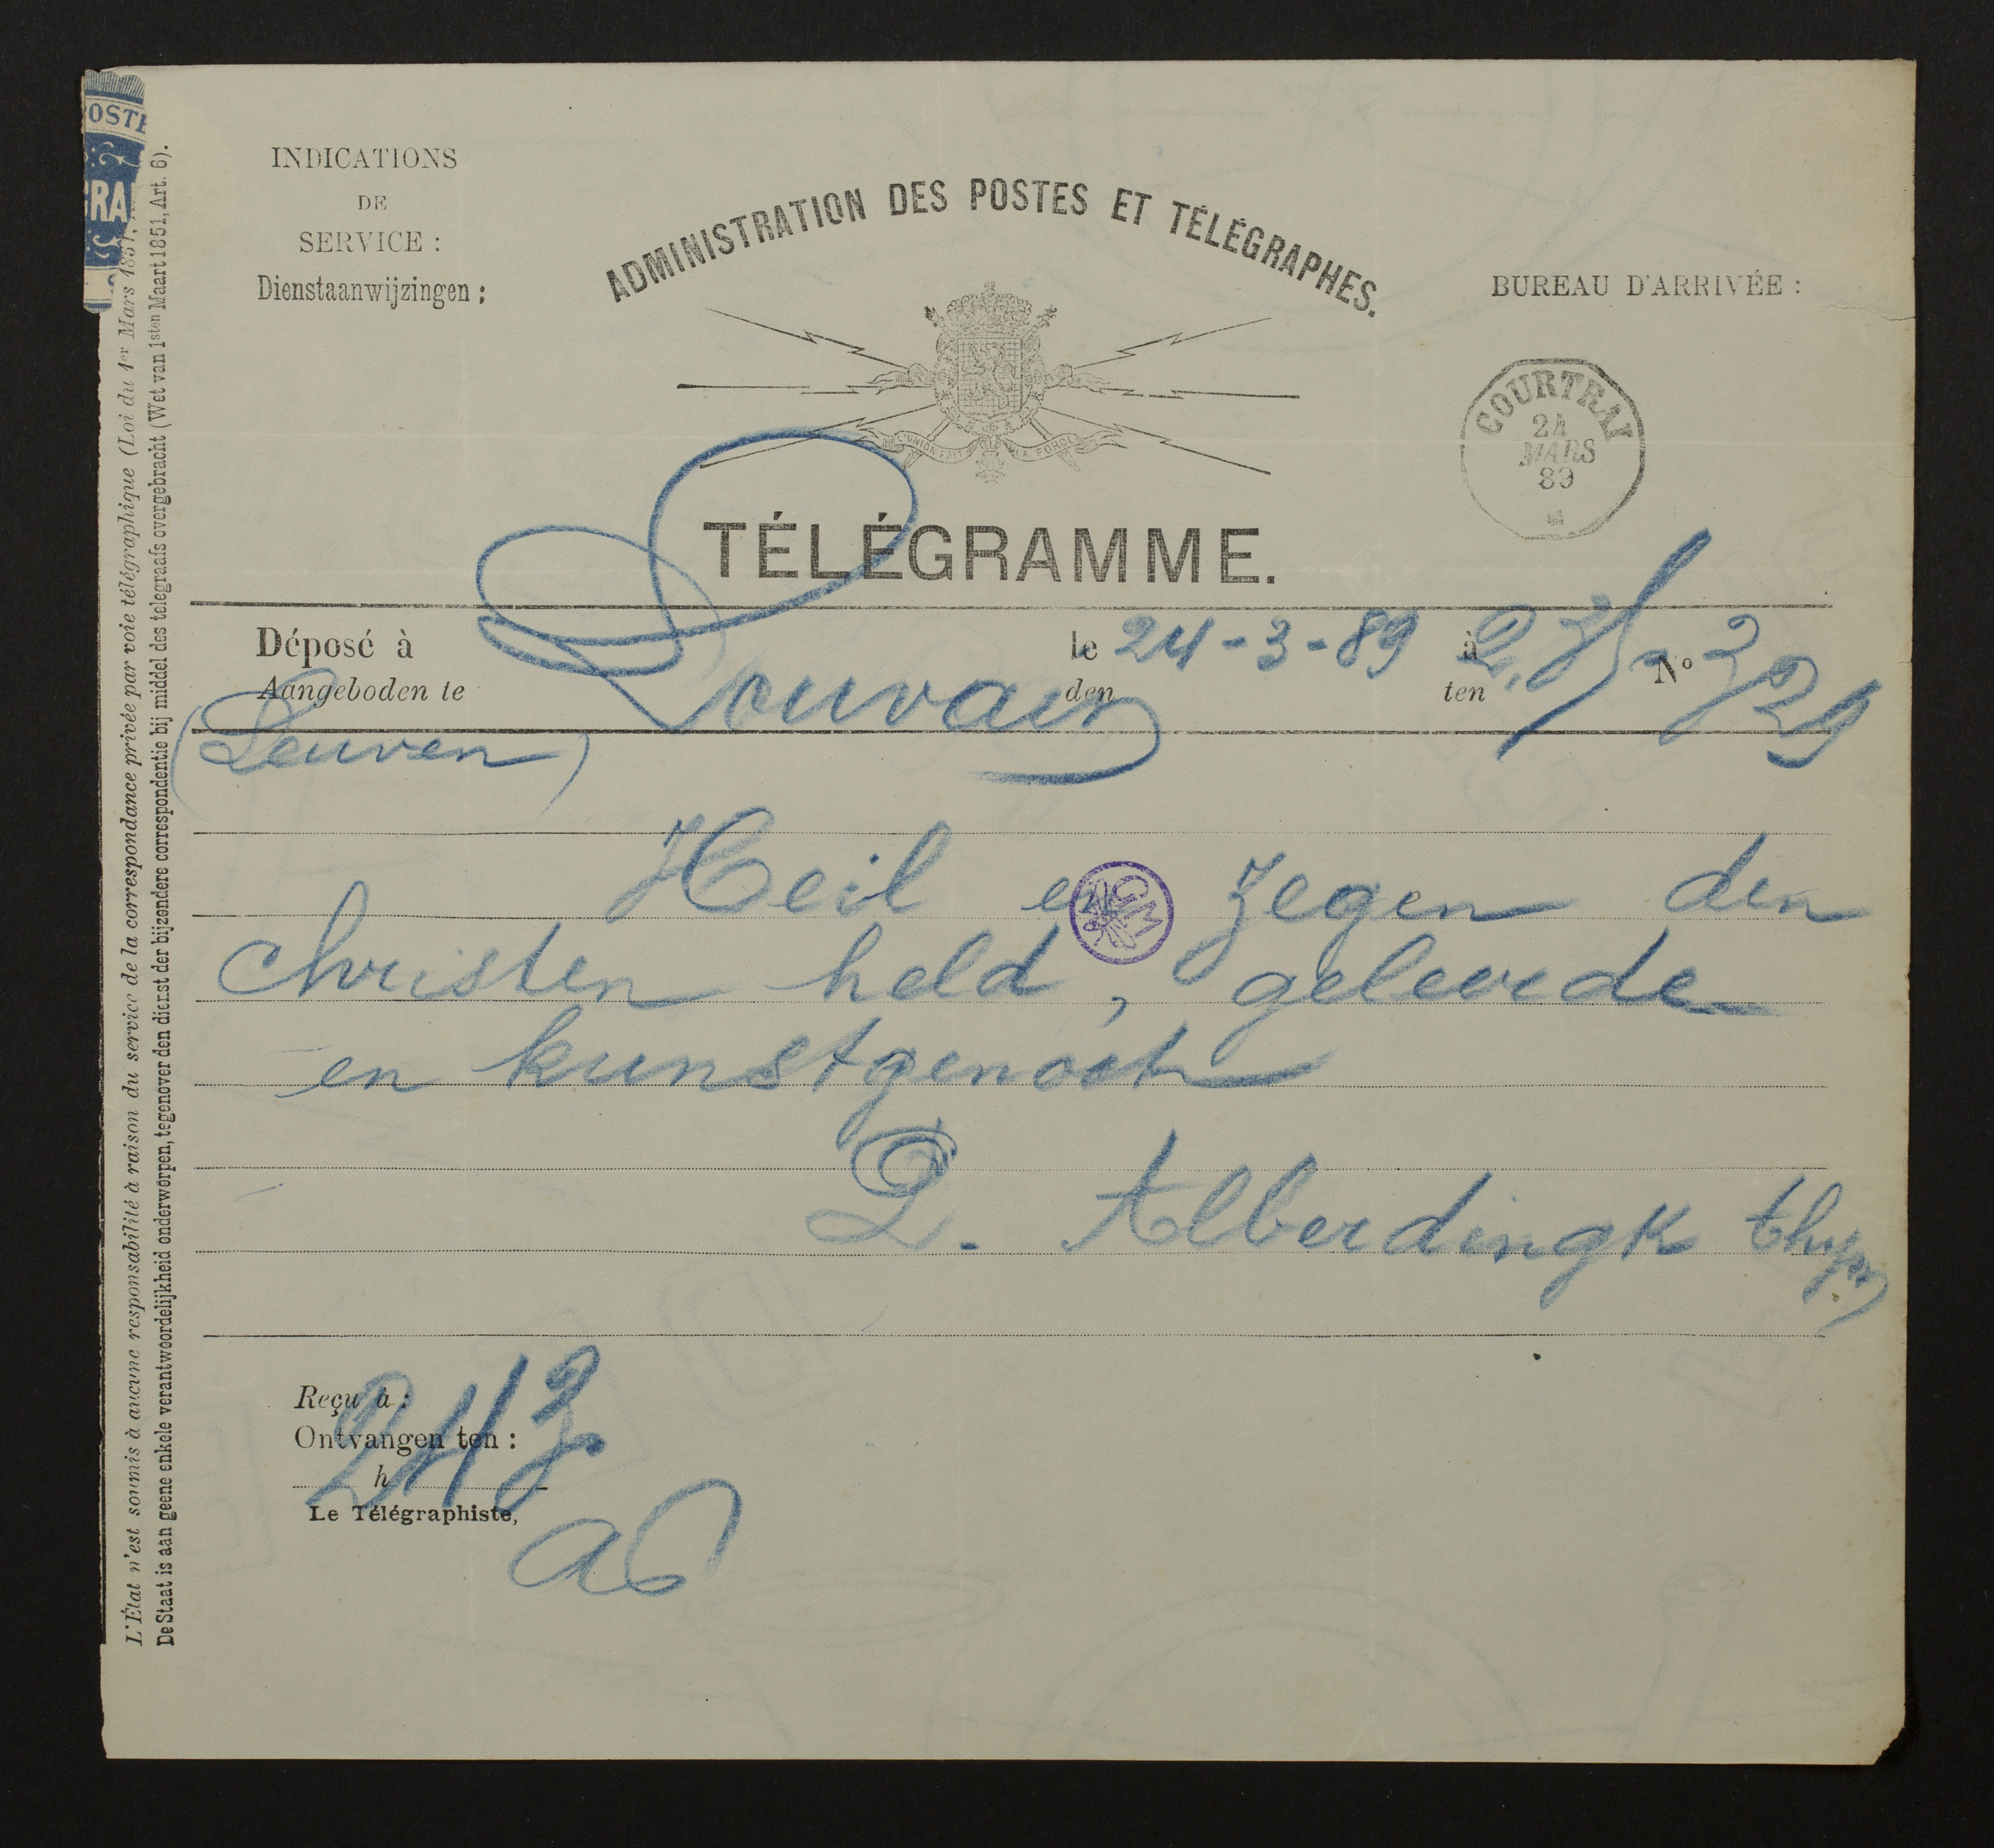 INDICATIONS
DE
SERVICE :
Dienstaanwijzingen :
ADMINISTRATION DES POSTES ET TÉLÉGRAPHES.
L'UNION FAIT LA FORCE
BUREAU D'ARRIVÉE :
COURTRAI
24
MARS
89
TÉLÉGRAMME.
Déposé à Louvain le 24-3-89 à N°
Aangeboden te den ten
(Leuven)
Heil en zegen den
christen held, geleerde
en kunstgenoot
P. Alberdingk thijm
Reçu à :
Ontvangen ten :
h
Le Télégraphiste,
L'État n'est soumis à aucune responsabilité à raison du service de la correspondance privée par voie télégraphique (Loi du 1er Mars 1851,
De Staat is aan geene enkele verantwoordelijkheid onderworpen, tegenover den dienst der bijzondere correspondentie bij middel des telegraafs overgebracht (Wet van 1sten Maart 1851, Art. 6).